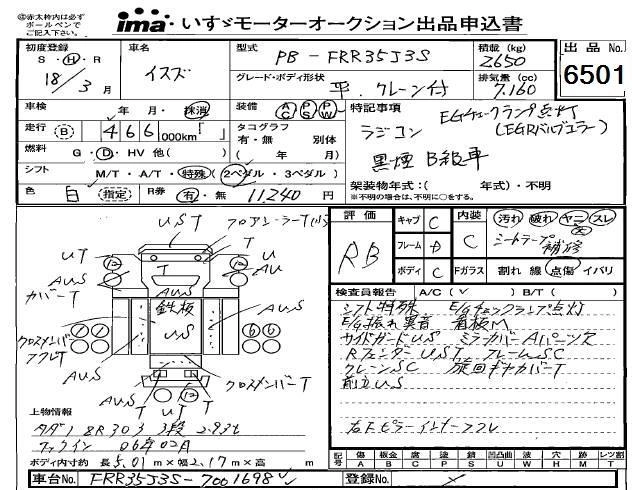 ◎赤太枠内は必ず
ボールペンで
ご記入下さい。
ima いすゞモーターオークション出品申込書
初度登録
S・H・R
18/3月
車名
イスズ
型式
PB-FRR35J3S
グレード・ボディ形状
平. クレーン付
積載(kg)
2650
排気量(cc)
7,160
出品No.
6501
車検
年 月・抹消
装備
AC PS PW
走行 (B) 466 000km「 」
タコグラフ
有・無 別体
( 年 月)
燃料
G・D・HV 他( )
シフト
M/T・A/T・特殊(2ペダル・3ペダル)
色
白 (指定)
R券
有・無 11240 円
特記事項
EGチェックランプ点灯
ラジコン (EGRバルブエラー)
黒煙 B級車
架装物年式:( 年式)・不明
※不明の場合は、不明に○をする。
UST フロアシーラーT(小)
UT
U
AU
AUS
カバーT
AUS
鉄板
US
AUS
AUS
クロスメンバー
アフレT
クロスメンバーT
AUS
T
U
T
UT
上物情報
タダノ ZR303 3段 2.93t
フックイン 06年02月
ボディ内寸約 長5.01m×幅2.17m×高 m
評価
RB
キャブ C
フレーム D
ボディ C
内装 C
汚れ 破れ ヤニ スレ
シートラップ補修
Fガラス 割れ 線 点傷 イバリ
検査員報告 A/C(✓ ) B/T( )
シフト特殊 E/Gチェックランプ点灯
E/G振れ異音 看板M
サイドガードUS ミラーカバーAパーツ欠
RフェンダーUST フレームSC
クレーンSC 旋回ギヤカバーT
前立US
右下ピラーインナーフクレ
記号
傷 板金 腐 塗 錆 凹凸曲 波 穴 跡 レツ割
A B C P S U W H M T
車台No. FRR35J3S-7001698
登録No.